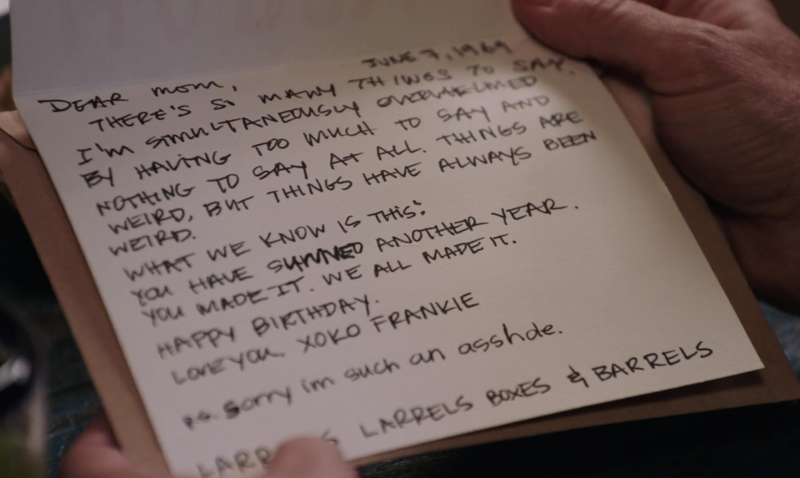 JUNE 7, 1969
DEAR MOM,
THERE'S SO MANY THINGS TO SAY.
I'M SIMULTANEOUSLY OVERWHELMED
BY HAVING TOO MUCH TO SAY AND
NOTHING TO SAY AT ALL. THINGS ARE
WEIRD, BUT THINGS HAVE ALWAYS BEEN
WEIRD.
WHAT WE KNOW IS THIS:
YOU HAVE ANOTHER YEAR.
YOU MADE IT. WE ALL MADE IT.
HAPPY BIRTHDAY.
Love you. XOXO FRANKIE
p.s. Sorry im such an asshole.
LARRELS BOXES & BARRELS